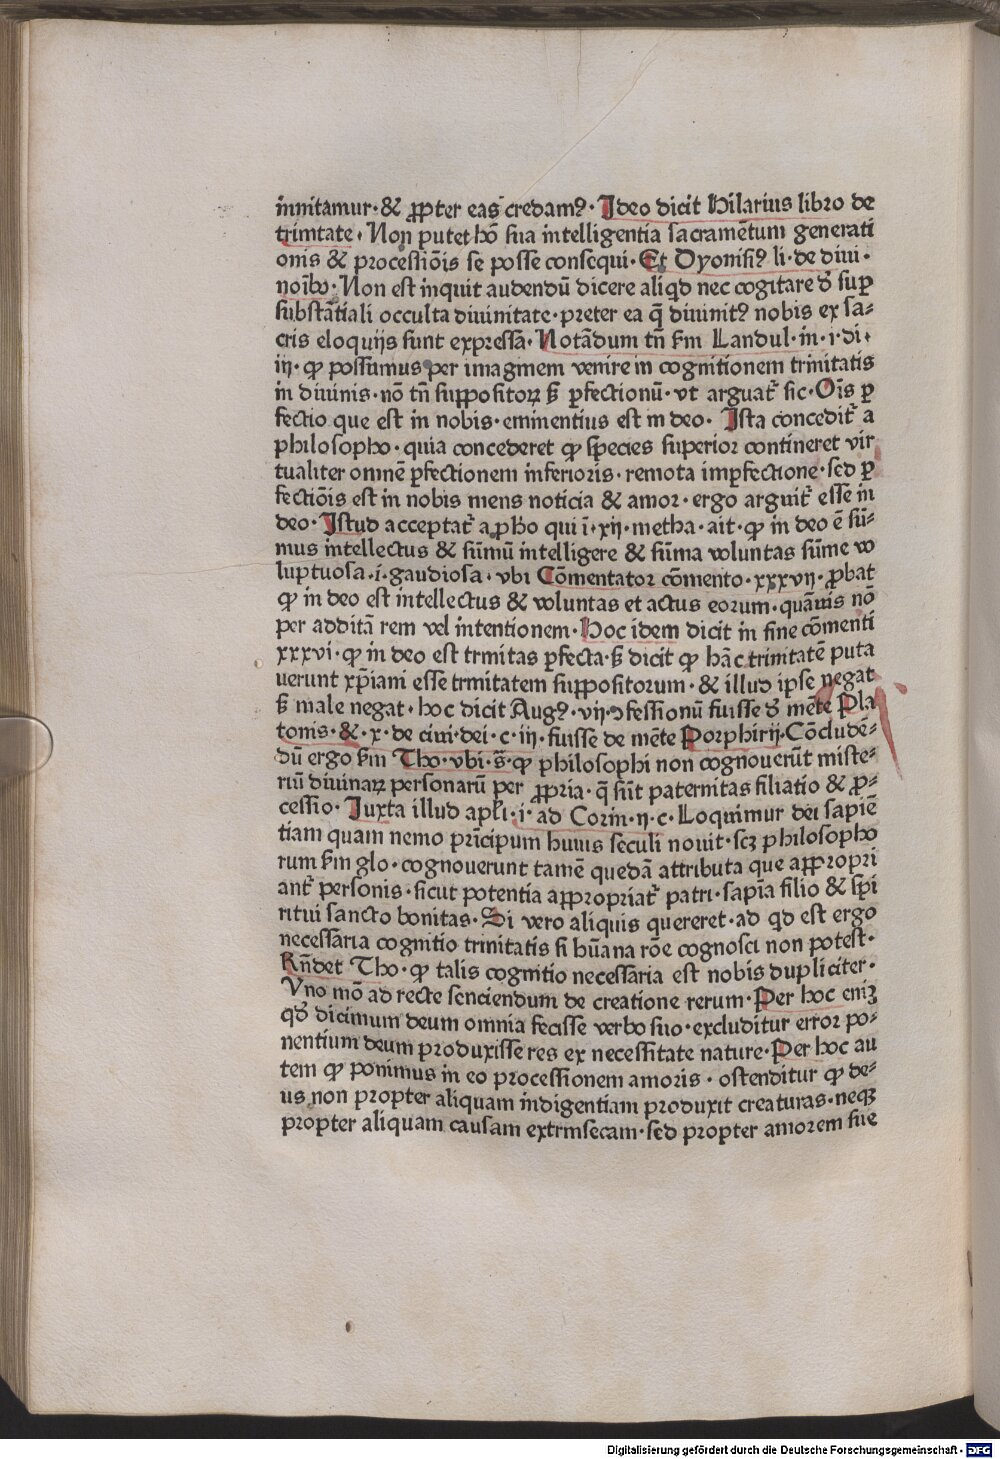 innitamur·& ꝓpter eas credamꝰ·Ideo dicit Hilarius libro de
trinitate·Non putet hō sua intelligentia sacramētum generati
onis & processiōis se posse consequi·Et Dyonisiꝰ li·de diui·
noībꝰ·Non est inquit audendū dicere aliqd nec cogitare đ suꝑ
substātiali occulta diuinitate·preter ea q̄ diuinitꝰ nobis ex sa⸗
cris eloquijs sunt expressa·Notādum tn̄ ẜm Landul·in·i·di·
iij·ꝙ possumus per imaginem venire in cognitionem trinitatis
in diuinis·nō tn̄ suppositoꝝ ẜ ꝑfectionū·vt arguat̄ sic·Oīs ꝑ
fectio que est in nobis·eminentius est in deo· Ista concedit̄ a
philosopho·quia concederet ꝙ species superior contineret vir
tualiter omnē ꝑfectionem inferioris·remota imꝑfectione·sed ꝑ
fectiōis est in nobis mens noticia & amor·ergo arguit̄ esse in
deo·Istud acceptat̄ a pħo qui ī·xij·metha·ait·ꝙ in deo ē sū⸗
mus intellectus & sūmū intelligere & sūma voluntas sūme vo
luptuosa·i·gaudiosa·vbi Cōmentator cōmento·xxxvij·ꝓbat
ꝙ in deo est intellectus & voluntas et actus eorum·quāuis nō
per additā rem vel intentionem·Hoc idem dicit in fine cōmenti
xxxvi·ꝙ in deo est trinitas ꝑfecta·ẜ dicit ꝙ hāc trinitatē puta
uerunt xp̄iani esse trinitatem suppositorum·& illud ipse negat
ẜ male negat·hoc dicit Augꝰ·vij·ꝯfessionū fuisse đ mēte Pla
tonis·&·x·de ciui·dei·c·iij·fuisse de mēte Porphirij·Cōcludē⸗
dū ergo ẜm Tho·vbi·s̄·ꝙ philosophi non cognouerūt miste⸗
riū diuinaꝝ personarū per ꝓpria·q̄ sūt paternitas filiatio & ꝓ⸗
cessio·Iuxta illud apłi·i·ad Corin·ij·c·Loquimur dei sapiē
tiam quam nemo prīcipum huius seculi nouit·scꝫ philosopho
rum ẜm glo·cognouerunt tamē quedā attributa que appropri
ant̄ personis·sicut potentia appropriat̄ patri·sapīa filio & sp̄i
ritui sancto bonitas·Si vero aliquis quereret·ad qd est ergo
necessaria cognitio trinitatis si hūana rōe cognosci non potest·
Rn̄det Tho·ꝙ talis cognitio necessaria est nobis dupliciter·
Vno mō ad recte senciendum de creatione rerum·Per hoc eniꝫ
qđ dicimum deum omnia fecisse verbo suo·excluditur error po⸗
nentium deum produxisse res ex necessitate nature·Per hoc au
tem ꝙ ponimus in eo processionem amoris·ostenditur ꝙ de⸗
us non propter aliquam indigentiam produxit creaturas·neqꝫ
propter aliquam causam extrinsecam·sed propter amorem sue
Digitalisierung gefördert durch die Deutsche Forschungsgemeinschaft - DFG